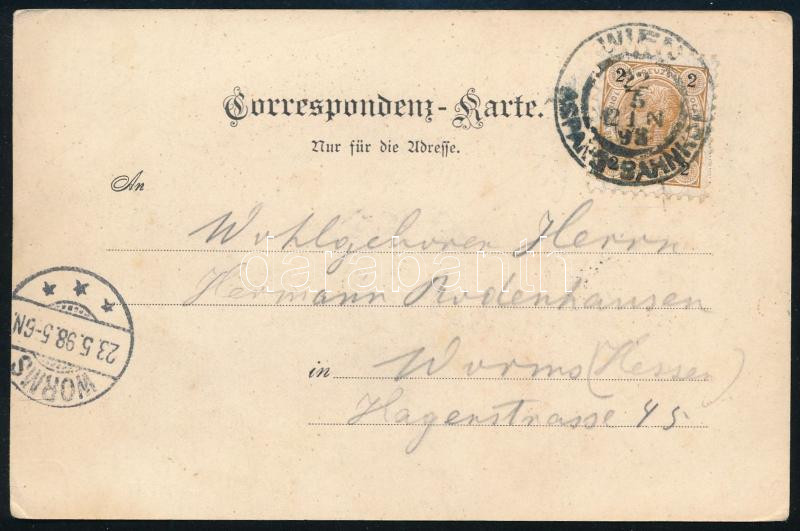 Correspondenz-Karte.
Nur für die Adresse.
An
Wohlgeboren Herrn
Hermann Rodenhausen
in Worms (Hessen)
Hagenstrasse 45
WIEN
22
5
12 1 N
98
ASPANGBAHNHOF
2 2
WORMS
23.5.98.5-6N
darabanth